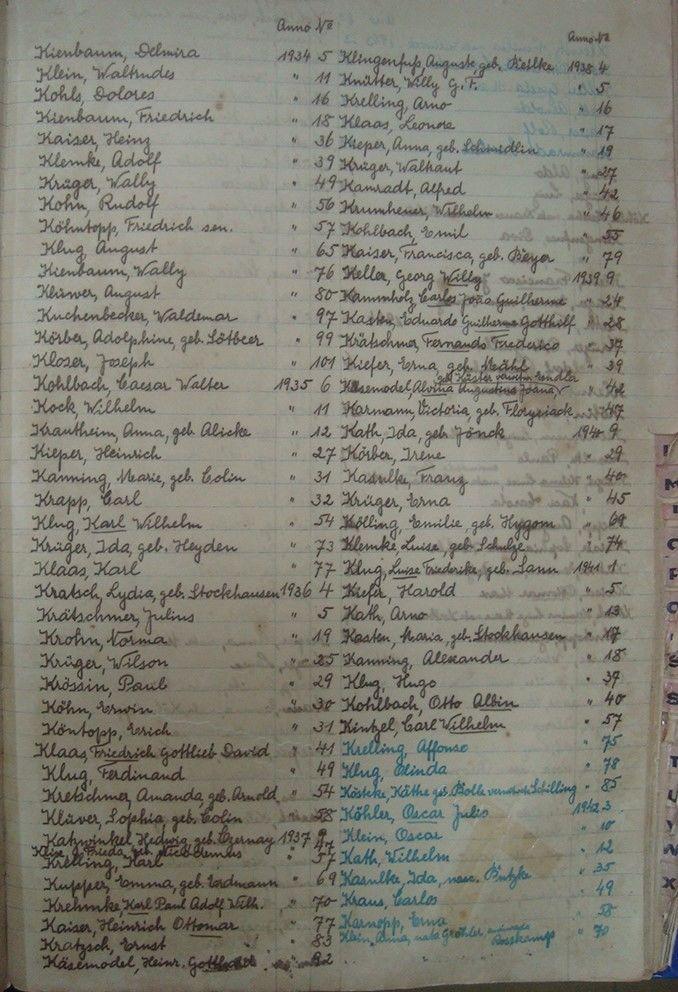 Anno No
Kienbaum, Delmira 1934 5
Klein, Waltrudes " 11
Kohls, Dolores " 16
Kienbaum, Friedrich " 18
Kaiser, Heinz " 36
Klemke, Adolf " 39
Krüger, Wally " 49
Kohn, Rudolf " 56
Köhntopp, Friedrich sen. " 57
Klug, August " 65
Kienbaum, Wally " 76
Klüwer, August " 80
Kuchenbecker, Waldemar " 97
Körber, Adolphine, geb. Lötbeer " 99
Kloser, Joseph " 101
Kohlbach, Caesar Walter 1935 6
Kock, Wilhelm " 11
Krautheim, Anna, geb. Alicke " 12
Kieper, Heinrich " 27
Kanning, Marie, geb. Colin " 31
Krapp, Carl " 32
Klug, Karl Wilhelm " 54
Krüger, Ida, geb. Heyden " 73
Klaas, Karl " 77
Kratsch, Lydia, geb. Stockhausen 1936 4
Krätschmer, Julius " 5
Krohn, Norma " 19
Krüger, Wilson " 25
Krössin, Paul " 29
Köhn, Erwin " 30
Köntopp, Erich " 31
Klaas, Friedrich Gottlieb David " 41
Klug, Ferdinand " 49
Kretschmer, Amanda, geb. Arnold " 54
Klüver, Sophia, geb. Colin " 58
Katzwinkel, Hedwig, geb. Czernay 1937 9
geb. 47
Krelling, Karl " 57
Kupper, Emma, geb. Erdmann " 69
Krehmke, Karl Paul Adolf Wilh. " 70
Kaiser, Heinrich Ottomar " 77
Kratzsch, Ernst " 83
Käsemodel, Heinr. " 92
Anno No
Klingenfuß, Auguste, geb. Bielke 1938 4
Knütter, Willy G. F. " 5
Krelling, Arno " 16
Klaas, Leonore " 17
Kieper, Anna, geb. Schmidlin " 19
Krüger, Waltraut " 27
Kamradt, Alfred " 42
Krumheuer, Wilhelm " 46
Kohlbach, Emil " 55
Kaiser, Francisca, geb. Beyer " 79
Keller, Georg Willy 1939 9
Kammholz, Carlos João Guilherme " 24
Kasten, Eduardo Guilherme Gotthilf " 28
Krätschmer, Fernando Frederico " 37
Kiefer, Erna, geb. Mähl " 39
geb. Köster
Käsemodel, Alvina Augustina Joana " 42
Karmann, Victoria, geb. Florysiack " 47
Kath, Ida, geb. Jönck 1940 9
Körber, Irene " 29
Kasulke, Franz " 40
Krüger, Erna " 45
Kölling, Emilie, geb. Hygom " 69
Klemke, Luise, geb. Schulze " 74
Klug, Luise Friederike, geb. Sann 1941 1
Kiefer, Harold " 5
Kath, Arno " 13
Kasten, Maria, geb. Stockhausen " 17
Kanning, Alexander " 18
Klug, Hugo " 37
Kohlbach, Otto Albin " 40
Kintzel, Carl Wilhelm " 57
Krelling, Affonso " 75
Klug, Olinda " 78
Kösteke, Käthe geb. Bolle Schilling " 85
Köhler, Oscar Julio 1942 3
Klein, Oscar " 10
Kath, Wilhelm " 12
Kasulke, Ida, nasc. Butzke " 35
Kraus, Carlos " 49
Karnopp, Erna " 58
Klein, Anna, nata Gröhler, Bosskamp " 70